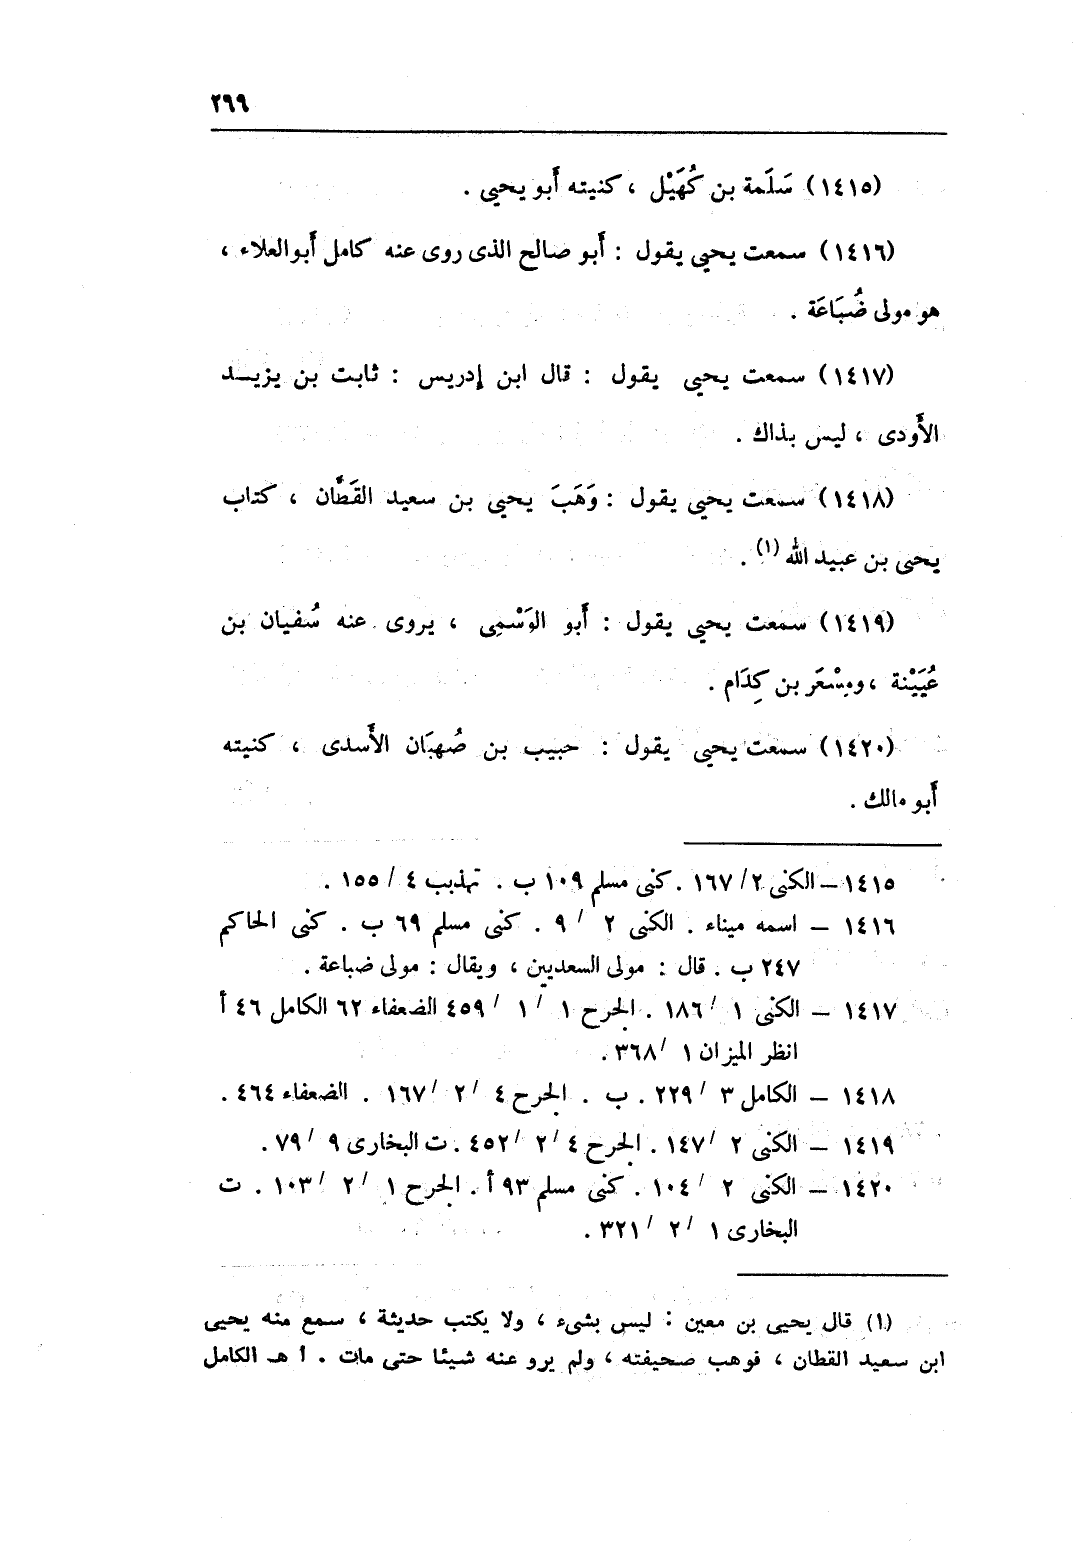 ٢٦٩
(١٤١٥) سَلَمة بن كُهَيْل ، كنيته أَبو يحيى .
(١٤١٦) سمعت يحيى يقول : أَبو صالح الذى روى عنه كامل أَبو العلاء ،
هو مولى ضُبَاعَة .
(١٤١٧) سمعت يحيى يقول : قال ابن إدريس : ثابت بن يزيد
الأَودى ، ليس بذاك .
(١٤١٨) سمعت يحيى يقول : وَهَبَ يحيى بن سعيد القَطَّان ، كتاب
يحيى بن عبيد الله (١) .
(١٤١٩) سمعت يحيى يقول : أَبو الوَسْمِى ، يروى عنه سُفيان بن
عُيَيْنة ، ومِسْعَر بن كِدَام .
(١٤٢٠) سمعت يحيى يقول : حبيب بن صُهبَان الأَسدى ، كنيته
أَبو مالك .
١٤١٥ – الكنى ٢/ ١٦٧ . كنى مسلم ١٠٩ ب . تهذيب ٤ / ١٥٥ .
١٤١٦ – اسمه ميناء . الكنى ٢ / ٩ . كنى مسلم ٦٩ ب . كنى الحاكم
٢٤٧ ب . قال : مولى السعديين ، ويقال : مولى ضباعة .
١٤١٧ – الكنى ١ / ١٨٦ . الجرح ١ / ١ / ٤٥٩ الضعفاء ٦٢ الكامل ٤٦ أ
انظر الميزان ١ / ٣٦٨ .
١٤١٨ – الكامل ٣ / ٢٢٩ . ب . الجرح ٤ / ٢ / ١٦٧ . الضعفاء ٤٦٤ .
١٤١٩ – الكنى ٢ / ١٤٧ . الجرح ٤ / ٢ / ٤٥٢ . ت البخارى ٩ / ٧٩ .
١٤٢٠ – الكنى ٢ / ١٠٤ . كنى مسلم ٩٣ أ . الجرح ١ / ٢ / ١٠٣ . ت
البخارى ١ / ٢ / ٣٢١ .
(١) قال يحيى بن معين : ليس بشىء ، ولا يكتب حديثة ، سمع منه يحيى
ابن سعيد القطان ، فوهب صحيفته ، ولم يرو عنه شيئا حتى مات . أ هـ الكامل